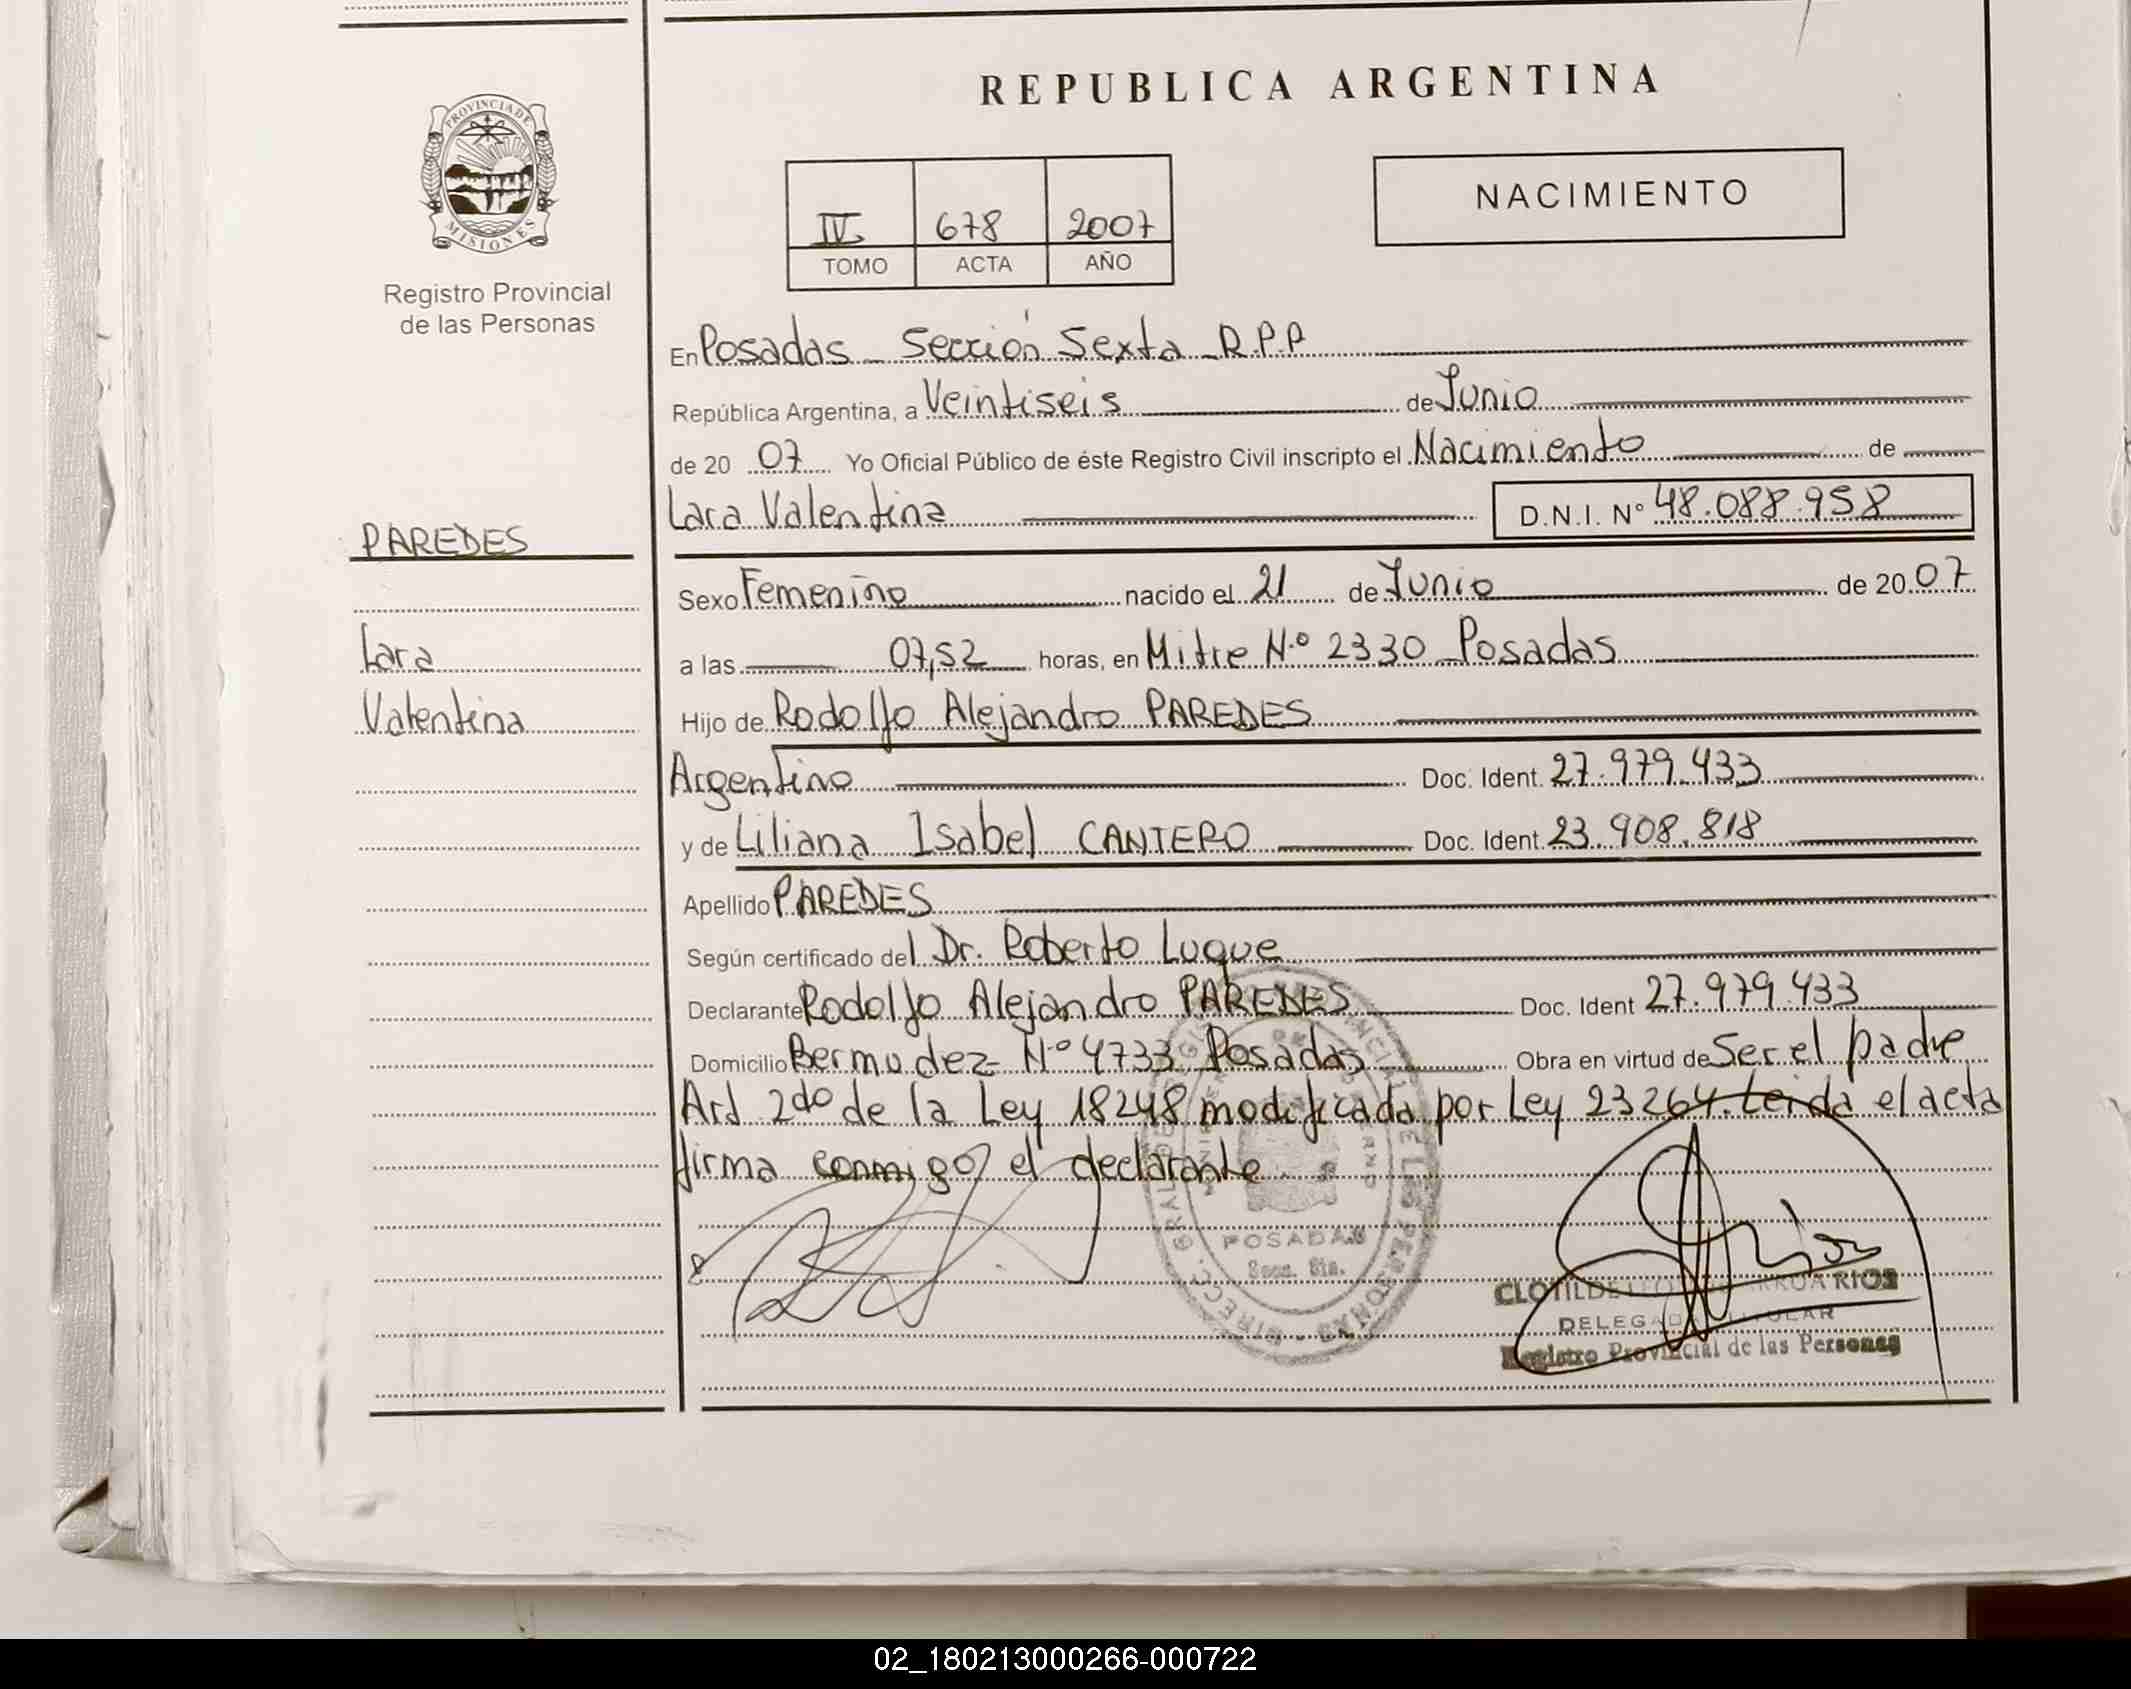 REPUBLICA ARGENTINA
PROVINCIA DE
MISIONES
Registro Provincial
de las Personas
NACIMIENTO
IV 678 2007
TOMO ACTA AÑO
En Posadas - Sección Sexta - R.P.P
República Argentina, a Veintiseis de Junio
de 20 07 Yo Oficial Público de éste Registro Civil inscripto el Nacimiento de
Lara Valentina D.N.I. N° 48.088.958
PAREDES
Sexo Femenino nacido el 21 de Junio de 20 07
Lara
a las 07,52 horas, en Mitre N.º 2330 - Posadas
Valentina
Hijo de Rodolfo Alejandro PAREDES
Argentino Doc. Ident. 27.979.433
y de Liliana Isabel CANTERO Doc. Ident. 23.908.818
Apellido PAREDES
Según certificado del Dr. Roberto Luque
Declarante Rodolfo Alejandro PAREDES Doc. Ident 27.979.433
Domicilio Bermudez Nº 4733 Posadas Obra en virtud de Ser el padre
Art 2do de la Ley 18248 modificada por Ley 23264. Leida el acta
firma conmigo el declarante
POSADAS
Secc. 6ta.
CLOTILDE RIOS
Registro Provincial de las Personas
02_180213000266-000722